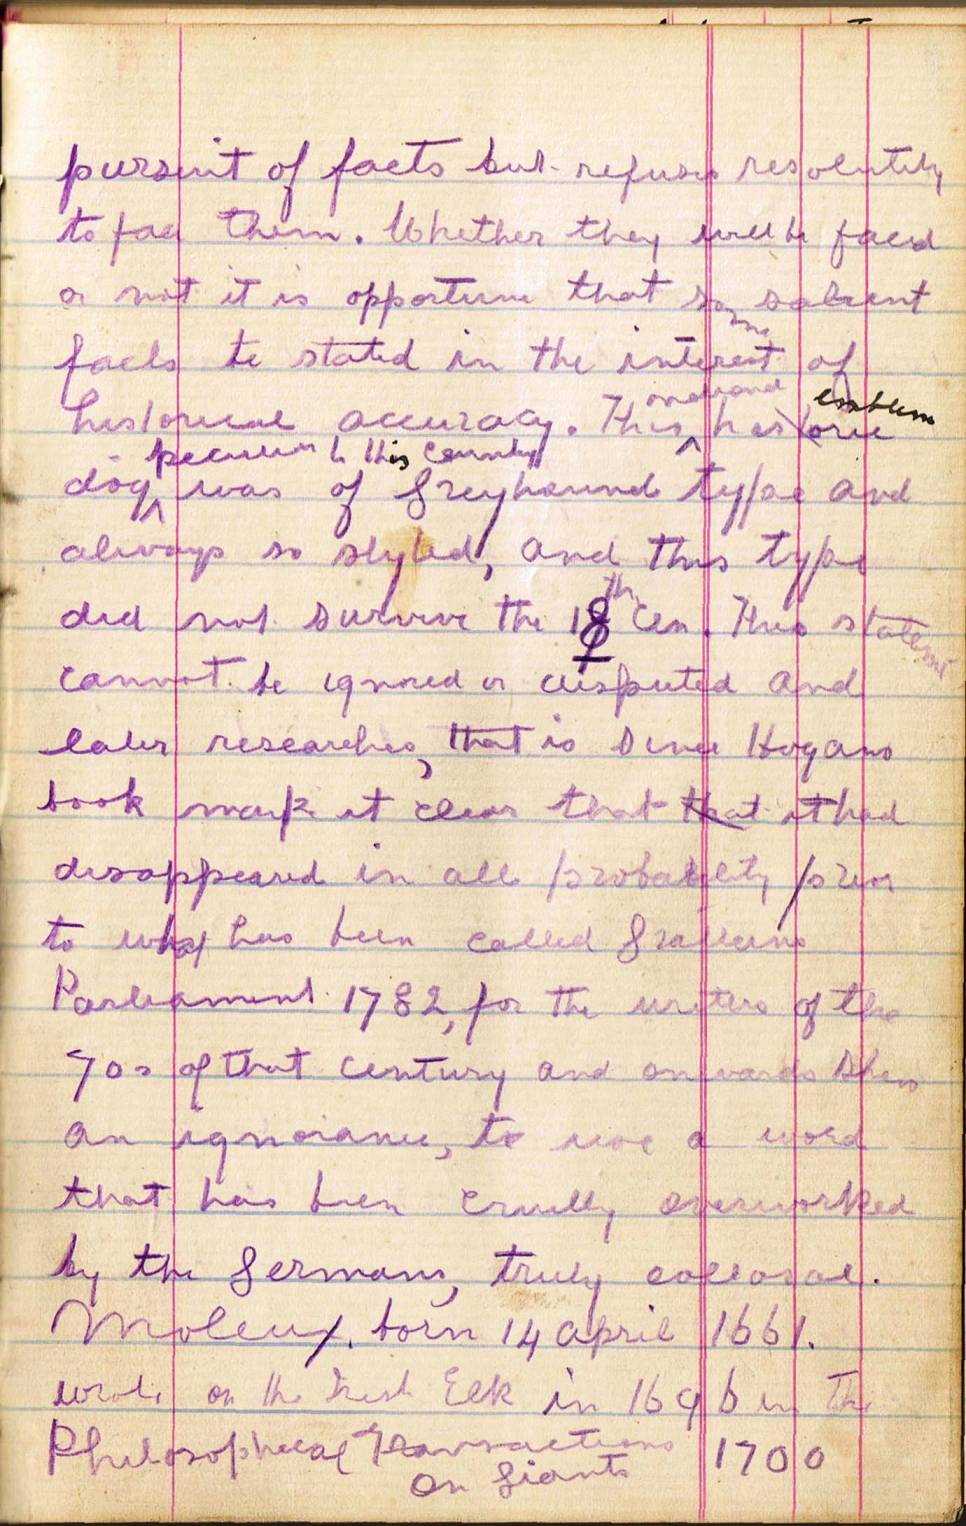 pursuit of facts but refuses resolutely
to face them. Whether they will be faced
or not it is opportune that some salient
facts be stated in the interest of
historical accuracy. This historic
emblem
peculiar to this country
dog was of Greyhound type and
always so styled, and this type
did not survive the 18th Cen. This statement
cannot be ignored or disputed and
later researches, that is since Hogans
book make it clear that that it had
disappeared in all probability prior
to what has been called Grattans
Parliament 1782, for the writers of the
70s of that century and onwards shew
an ignorance, to use a word
that has been cruelly overworked
by the Germans, truly collosal.
Moleux, born 14 april 1661.
wrote on the Irish Elk in 1696 in The
Philosophical Transactions 1700
On Giants